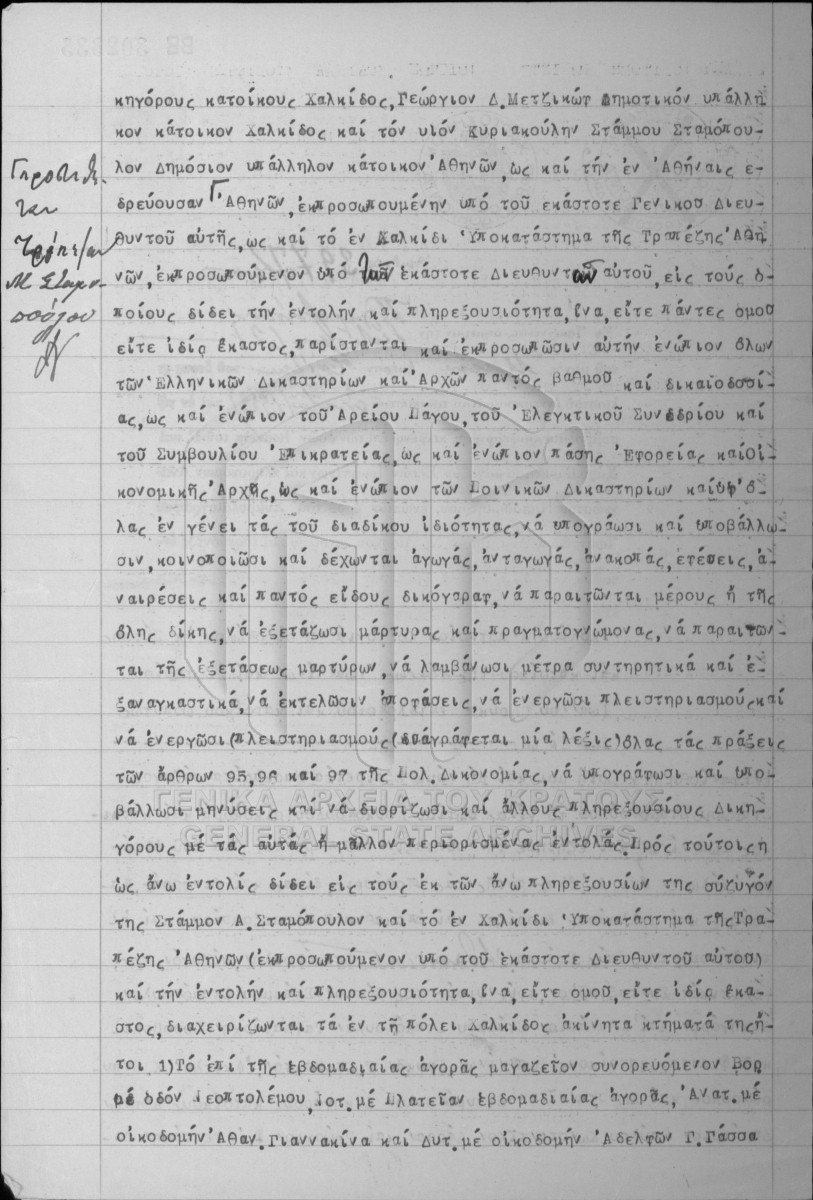 κηγόρους κατοίκους Χαλκίδος, Γεώργιον Δ. Μετζικώτ Δημοτικόν υπάλλη
κον κάτοικον Χαλκίδος καί τόν υιόν Κυριακούλην Στάμμου Σταμόπου-
λον Δημόσιον υπάλληλον κάτοικον Ἀθηνῶν, ὡς καί τήν ἐν Ἀθήναις ε-
δρεύουσαν Γ Ἀθηνῶν, ἐκπροσωπουμένην υπό τοῦ εκάστοτε Γενικοῦ Διευ-
θυντοῦ αὐτῆς, ως καί τό εν Χαλκίδι Ὑποκατάστημα τῆς Τραπέζης Ἀθη
νῶν, ἐκπροσωπούμενον ὑπό τῶν ἑκάστοτε Διευθυντῶν αὐτοῦ, εἰς τούς ὁ-
ποίους δίδει τήν ἐντολήν καί πληρεξουσιότητα, ἵνα, εἴτε πάντες ὁμοῦ
εἴτε ἰδίᾳ ἕκαστος, παρίστανται καί ἐκπροσωπῶσιν αὐτήν ἐνώπιον ὅλων
τῶν Ἑλληνικῶν Δικαστηρίων καί Ἀρχῶν παντός βαθμοῦ καί δικαιοδοσί-
ας, ως καί ἐνώπιον τοῦ Ἀρείου Πάγου, τοῦ Ἐλεγκτικοῦ Συνεδρίου καί
τοῦ Συμβουλίου Ἐπικρατείας, ὡς καί ἐνώπιον πάσης Ἐφορείας καί Οἰ-
κονομικῆς Ἀρχῆς, ὡς καί ἐνώπιον τῶν Ποινικῶν Δικαστηρίων καί ὑφ' ὅ-
λας ἐν γένει τάς τοῦ διαδίκου ἰδιότητας, νά υπογράωσι καί υποβάλλω-
σιν, κοινοποιῶσι καί δέχωνται ἀγωγάς, ἀνταγωγάς, ἀνακοπάς, εφέσεις, ἀ-
ναιρέσεις καί παντός εἴδους δικόγραφ, νά παραιτῶνται μέρους ἤ τῆς
ὅλης δίκης, νά ἐξετάζωσι μάρτυρας καί πραγματογνώμονας, νά παραιτῶν-
ται τῆς ἐξετάσεως μαρτύρων, νά λαμβάνωσι μέτρα συντηρητικά καί ἐ-
ξαναγκαστικά, νά ἐκτελῶσιν ἀποφάσεις, νά ἐνεργῶσι πλειστηριασμούς καί
νά ἐνεργῶσι (πλειστηριασμούς (διαγράφεται μία λέξις) ὅλας τάς πράξεις
τῶν ἄρθρων 95, 96 καί 97 τῆς Πολ. Δικονομίας, νά υπογράφωσι καί υπο-
βάλλωσι μηνύσεις καί νά διορίζωσι καί ἄλλους πληρεξουσίους Δικη-
ΓΕΝΙΚΑ ΑΡΧΕΙΑ ΤΟΥ ΚΡΑΤΟΥΣ
GENERAL STATE ARCHIVES
γόρους μέ τάς αὐτάς ἤ μᾶλλον περιορισμένας ἐντολάς. Πρός τούτοις η
ὡς ἄνω ἐντολίς δίδει εἰς τούς ἐκ τῶν ἄνω πληρεξουσίων της σύζυγόν
της Στάμμον Α. Σταμόπουλον καί τό ἐν Χαλκίδι Ὑποκατάστημα τῆς Τρα-
πέζης Ἀθηνῶν (ἐκπροσωπούμενον υπό τοῦ ἑκάστοτε Διευθυντοῦ αὐτοῦ)
καί τήν ἐντολήν καί πληρεξουσιότητα, ἵνα, εἴτε ομοῦ, εἴτε ἰδίᾳ ἕκα-
στος, διαχειρίζωνται τά ἐν τῇ πόλει Χαλκίδος ἀκίνητα κτήματά της ἤ-
τοι 1) Τό ἐπί τῆς ἑβδομαδιαίας ἀγορᾶς μαγαζεῖον συνορευόμενον Βορ
μέ ὁδόν Νεοπτολέμου, Νοτ. μέ Πλατεῖαν ἑβδομαδιαίας ἀγορᾶς, Ἀνατ. μέ
οἰκοδομήν Ἀθαν. Γιαννακίνα καί Δυτ. μέ οἰκοδομήν Ἀδελφῶν Γ. Γάσσα
Προστίθε-
ται
Τράπεζαν
Μ Σταμο-
πούλου